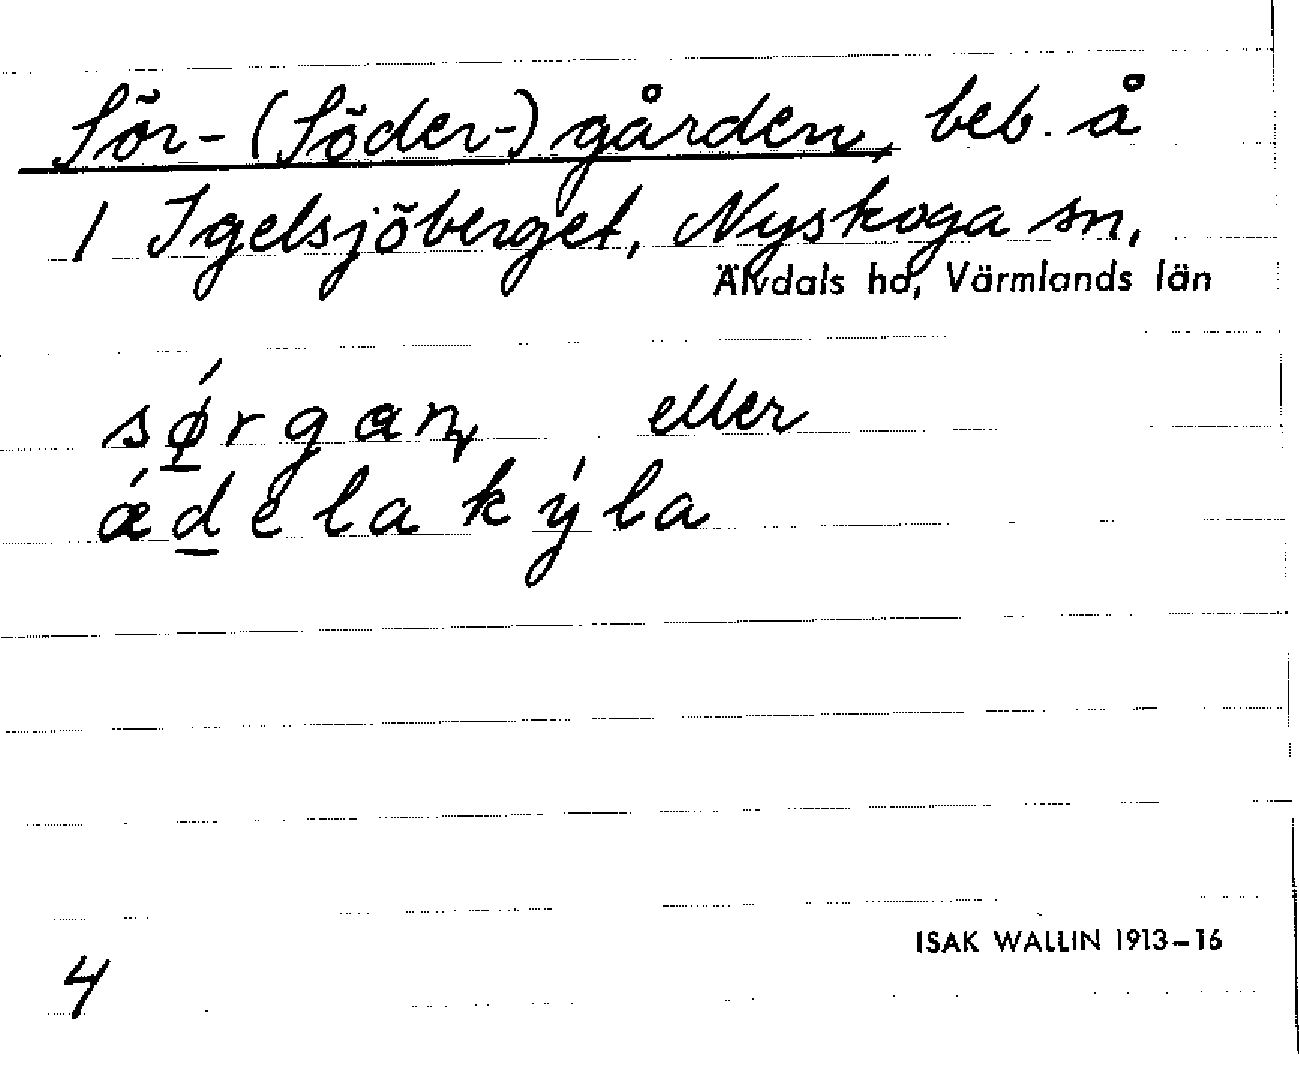 Sör- (Söder-) gården, beb. å
1 Igelsjöberget, Nyskoga sn,
Älvdals hd, Värmlands län
sǿ̱rgaɳ eller
ǽḏelakýla
ISAK WALLIN 1913–16
4